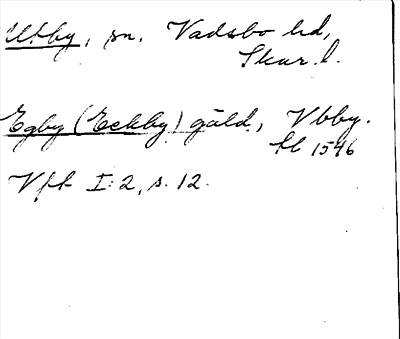 Utby, sn. Vadsbo hd,
Skar. l.
Egby (Eckby) gäld, Vbby.
hl 1546
Vfk I:2, s. 12.